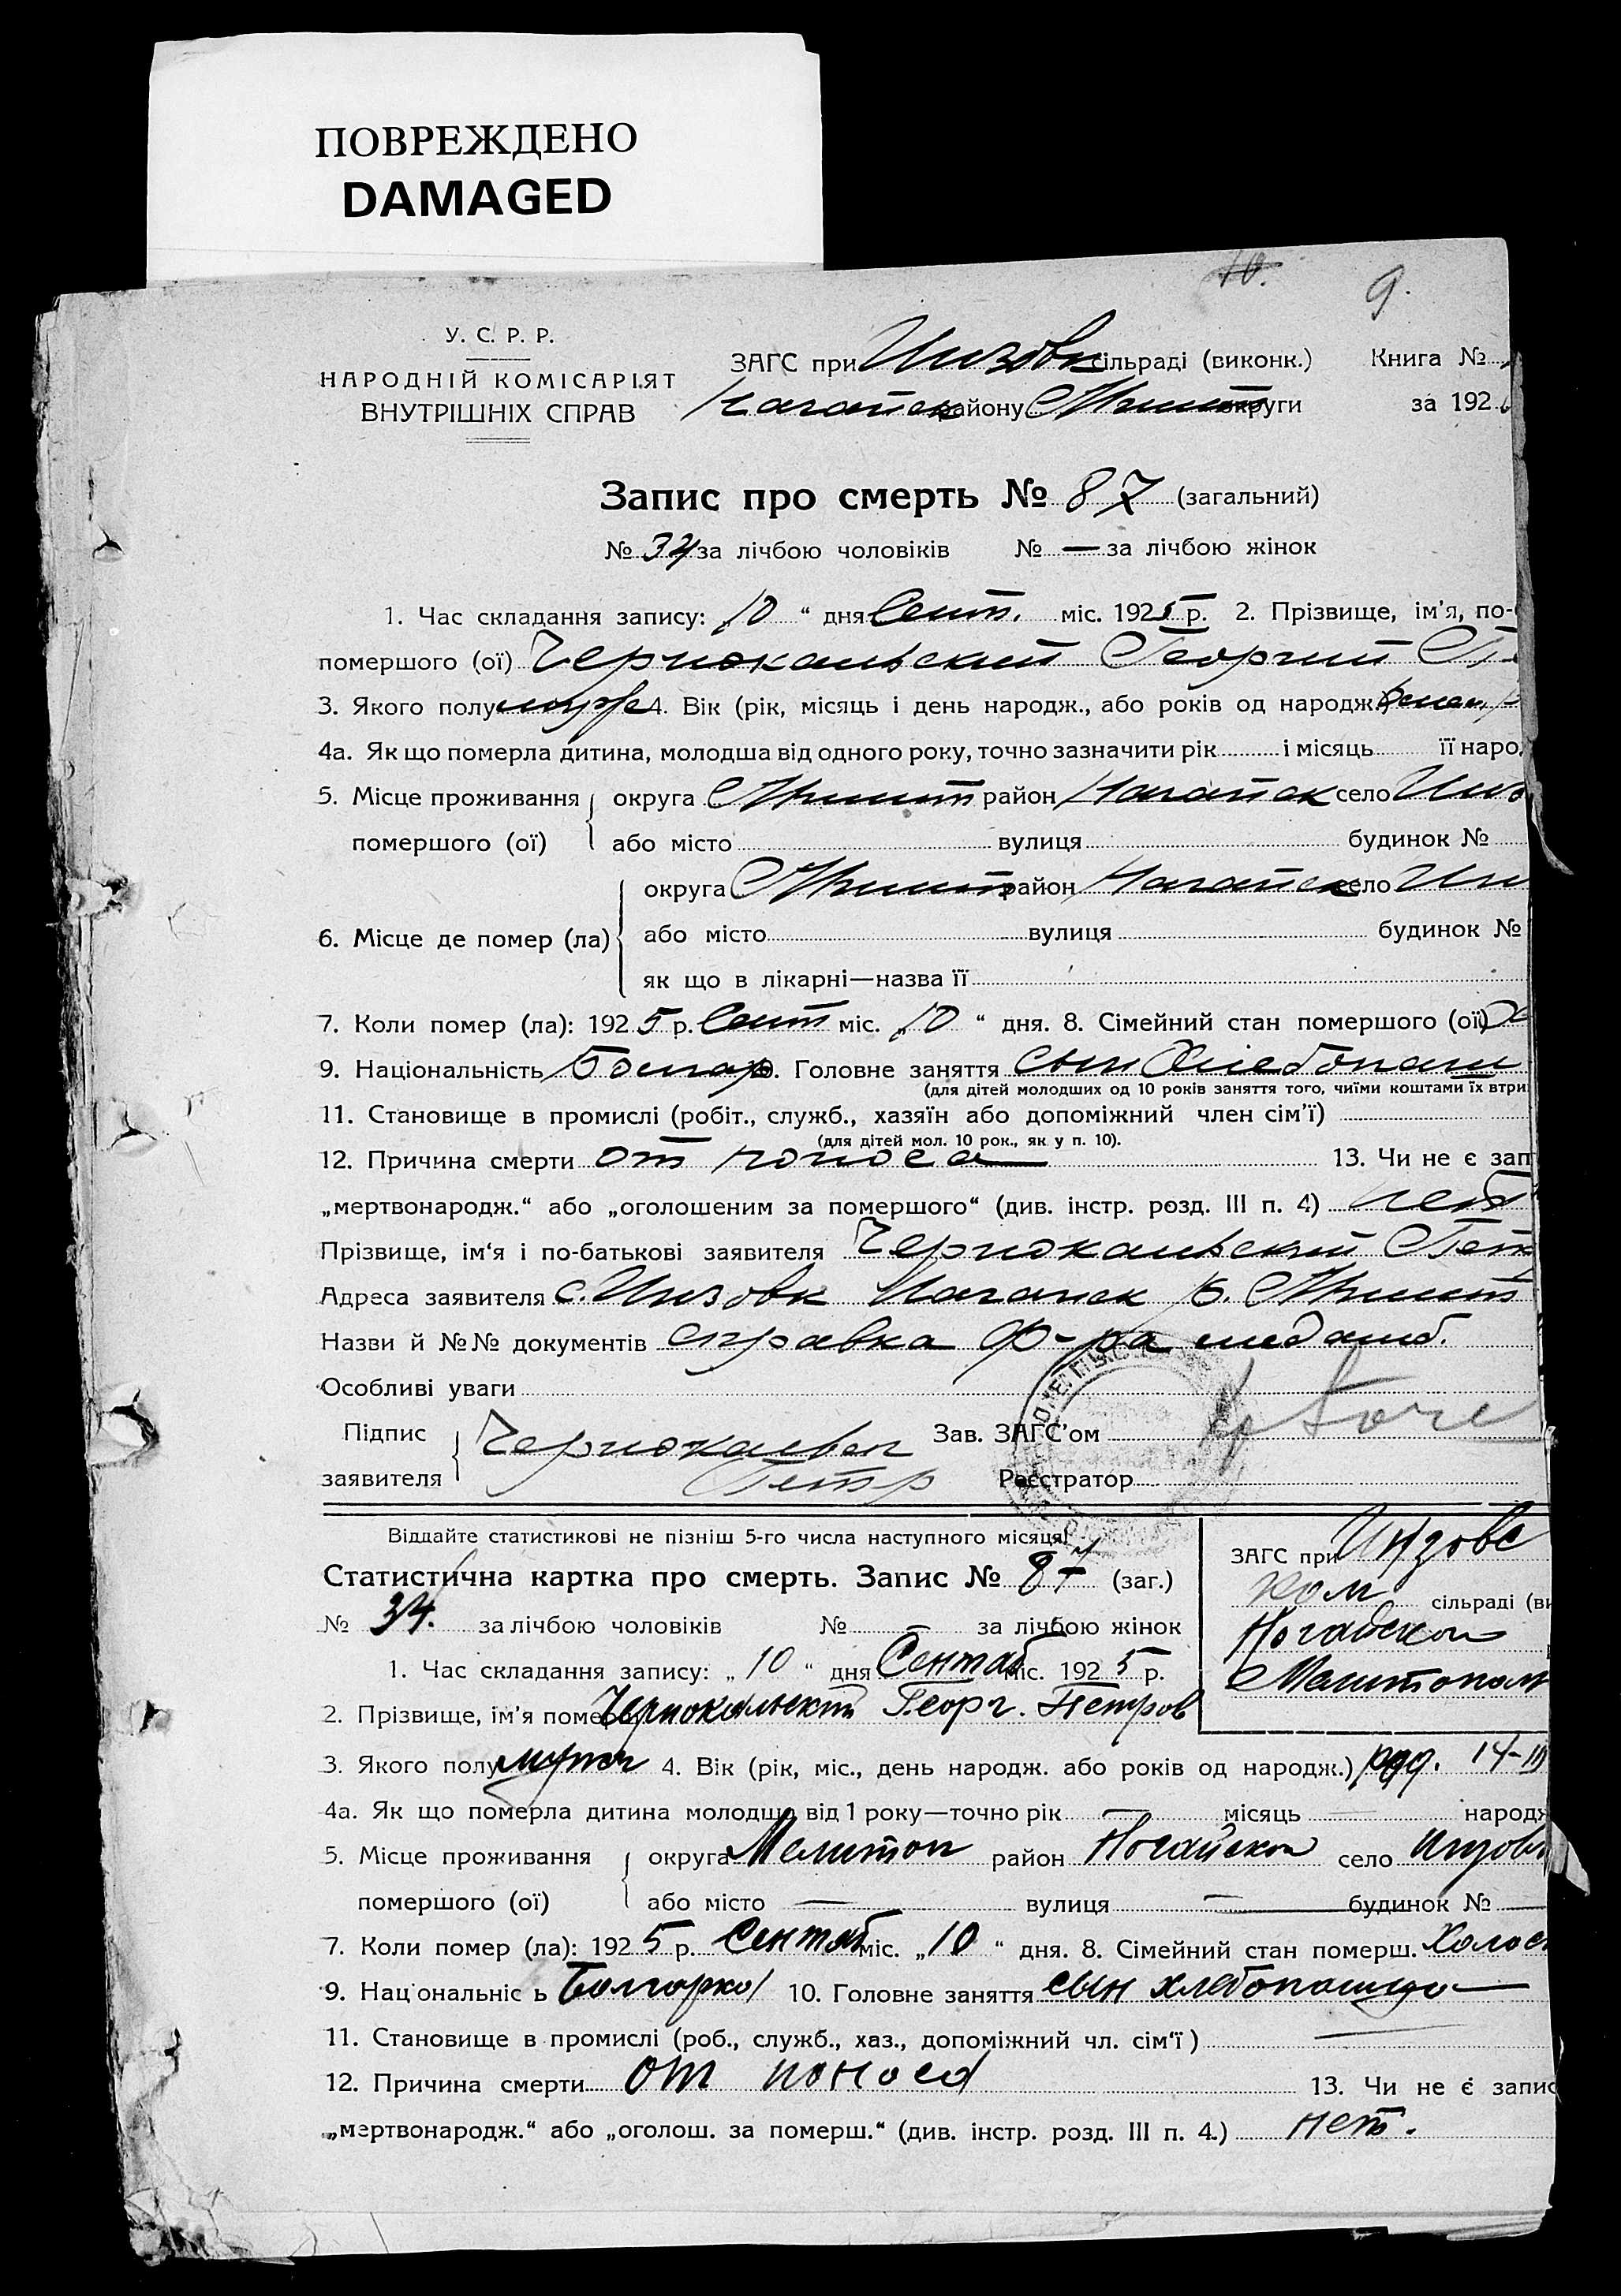 ПОВРЕЖДЕНО
DAMAGED
10.
9.
У. С. Р. Р.
НАРОДНІЙ КОМІСАРІЯТ
ВНУТРІШНІХ СПРАВ
ЗАГС при Инзовк сільраді (виконк.) Книга №
Ногайск району округи за 192
Запис про смерть № 87 (загальний)
№ 34 за лічбою чоловіків № — за лічбою жінок
1. Час складання запису: „10“ дня Сент. міс. 1925 р. 2. Прізвище, ім'я, по-
помершого (ої) Чернокальский Георгий
3. Якого полу 4. Вік (рік, місяць і день народж., або років од народж.)
4а. Як що померла дитина, молодша від одного року, точно зазначити рік і місяць її наро
5. Місце проживання округа район Ногайск село Инз
помершого (ої) або місто вулиця будинок №
округа район Ногайск село Ин
6. Місце де помер (ла) або місто вулиця будинок №
як що в лікарні—назва її
7. Коли помер (ла): 1925 р. Сент міс. „10“ дня. 8. Сімейний стан помершого (ої)
9. Національність Болгар 10. Головне заняття сын Хлебопаш
(для дітей молодших од 10 років заняття того, чиїми коштами їх втри
11. Становище в промислі (робіт., служб., хазяїн або допоміжний член сім'ї)
(для дітей мол. 10 рок., як у п. 10).
12. Причина смерти от поноса 13. Чи не є зап
„мертвонародж.“ або „оголошеним за помершого“ (див. інстр. розд. III п. 4) нет
Прізвище, ім'я і по-батькові заявителя Чернокальский Петр
Адреса заявителя с. Инзовк Ногайск р.
Назви й №№ документів справка ф-ра амб.
Особливі уваги
Підпис Чернокальск Зав. ЗАГС'ом
заявителя Петр Реєстратор
Віддайте статистикові не пізніш 5-го числа наступного місяця!
Статистична картка про смерть. Запис № 87 (заг.)
ЗАГС при Инзовс
ком сільраді (ви
Ногайском
Мелитополь
№ 34. за лічбою чоловіків № — за лічбою жінок
1. Час складання запису: „10“ дня Сентяб міс. 1925 р.
2. Прізвище, ім'я померш Чернокальский Георг. Петров
3. Якого полу мужск 4. Вік (рік, міс., день народж. або років од народж.) род. 14-III
4а. Як що померла дитина молодша від 1 року—точно рік — місяць — народж
5. Місце проживання округа Мелитоп район Ногайском село Инзовк
помершого (ої) або місто — вулиця — будинок № —
7. Коли помер (ла): 1925 р. Сентяб міс. „10“ дня. 8. Сімейний стан померш. Холос
9. Національніс ь Болгарской 10. Головне заняття сын хлебопашца —
11. Становище в промислі (роб., служб., хаз., допоміжний чл. сім'ї) —
12. Причина смерти от поноса 13. Чи не є запис
„мертвонародж.“ або „оголош. за померш.“ (див. інстр. розд. III п. 4.) нет.